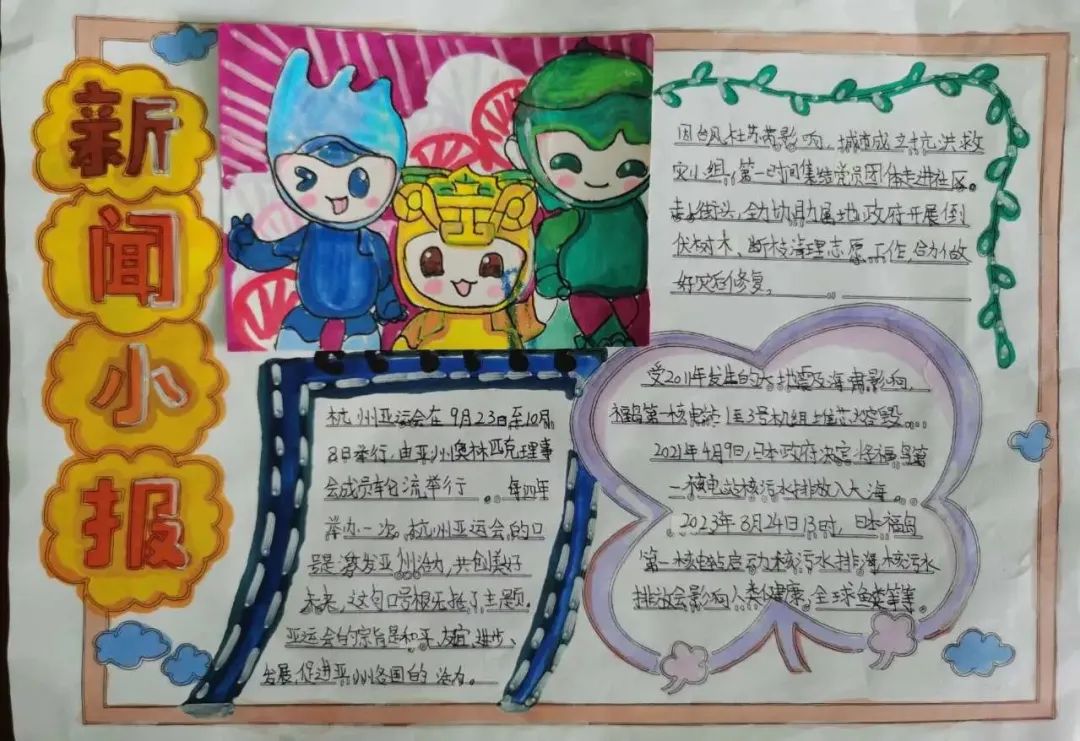 新闻小报
因台风杜苏芮影响,城市成立抗洪救
灾小组,第一时间集结党员团体走进社区。
走上街头,全力协助属地政府开展倒
伏树木、断枝清理志愿工作,合力做
好灾后修复。
杭州亚运会在9月23日至10月
8日举行,由亚州奥林匹克理事
会成员轮流举行。每四年
举办一次。杭州亚运会的口
号是激发亚州活力,共创美好
未来,这句口号
亚运会的宗旨是和平、友谊、进步、
发展,促进亚州各国的活力。
受2011年发生的大地震及海啸影响,
福岛第一核电站1至3号机组堆芯熔毁。
2021年4月9日,日本政府决定将福岛第
一核电站核污水排放入大海。
2023年8月24日13时,日本福岛
第一核电站启动核污水排海,核污水
排放会影响人类健康,全球鱼类等等。